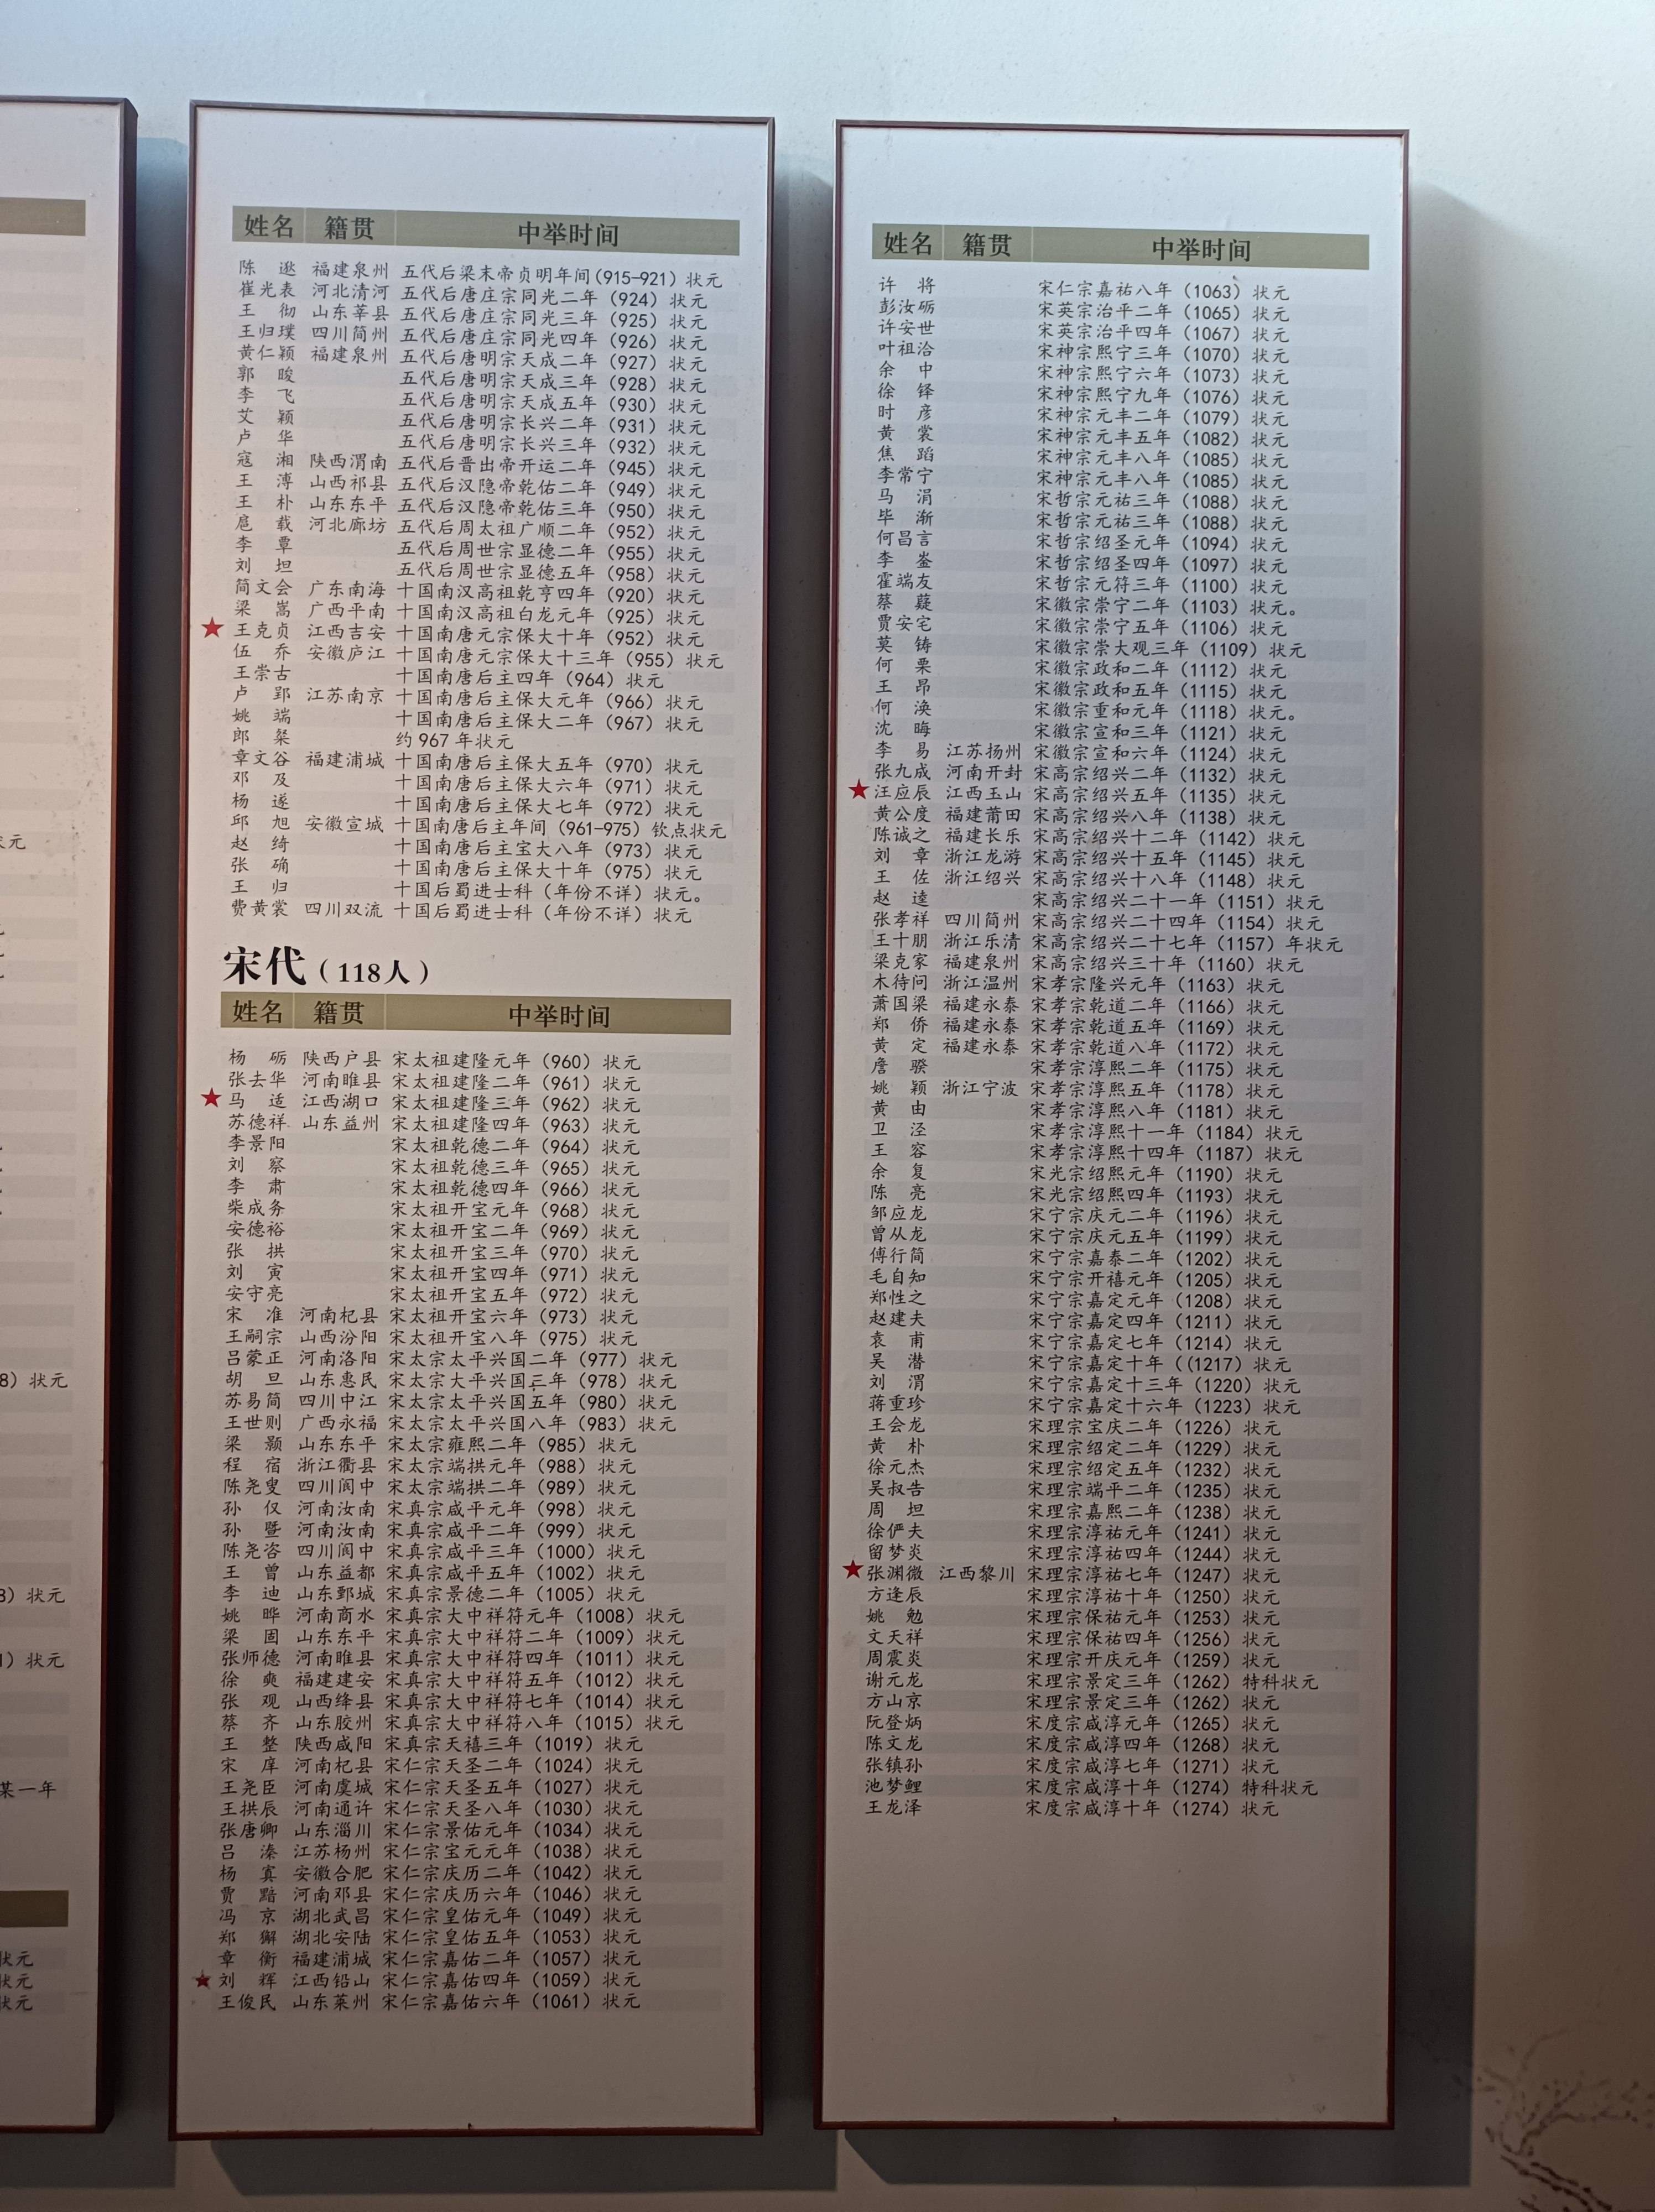 状元
8）状元
8）状元
1）状元
某一年
状元
状元
状元
姓名 籍贯 中举时间
陈逖 福建泉州 五代后梁末帝贞明年间（915-921）状元
崔光表 河北清河 五代后唐庄宗同光二年（924）状元
王彻 山东莘县 五代后唐庄宗同光三年（925）状元
王归璞 四川简州 五代后唐庄宗同光四年（926）状元
黄仁颖 福建泉州 五代后唐明宗天成二年（927）状元
郭晙 五代后唐明宗天成三年（928）状元
李飞 五代后唐明宗天成五年（930）状元
艾颖 五代后唐明宗长兴二年（931）状元
卢华 五代后唐明宗长兴三年（932）状元
寇湘 陕西渭南 五代后晋出帝开运二年（945）状元
王溥 山西祁县 五代后汉隐帝乾佑二年（949）状元
王朴 山东东平 五代后汉隐帝乾佑三年（950）状元
扈载 河北廊坊 五代后周太祖广顺二年（952）状元
李覃 五代后周世宗显德二年（955）状元
刘坦 五代后周世宗显德五年（958）状元
简文会 广东南海 十国南汉高祖乾亨四年（920）状元
梁嵩 广西平南 十国南汉高祖白龙元年（925）状元
王克贞 江西吉安 十国南唐元宗保大十年（952）状元
伍乔 安徽庐江 十国南唐元宗保大十三年（955）状元
王崇古 十国南唐后主四年（964）状元
卢郢 江苏南京 十国南唐后主保大元年（966）状元
姚端 十国南唐后主保大二年（967）状元
郎粲 约967年状元
章文谷 福建浦城 十国南唐后主保大五年（970）状元
邓及 十国南唐后主保大六年（971）状元
杨遂 十国南唐后主保大七年（972）状元
邱旭 安徽宣城 十国南唐后主年间（961-975）钦点状元
赵绮 十国南唐后主宝大八年（973）状元
张确 十国南唐后主保大十年（975）状元
王归 十国后蜀进士科（年份不详）状元。
费黄裳 四川双流 十国后蜀进士科（年份不详）状元
宋代（118人）
姓名 籍贯 中举时间
杨砺 陕西户县 宋太祖建隆元年（960）状元
张去华 河南睢县 宋太祖建隆二年（961）状元
马适 江西湖口 宋太祖建隆三年（962）状元
苏德祥 山东益州 宋太祖建隆四年（963）状元
李景阳 宋太祖乾德二年（964）状元
刘察 宋太祖乾德三年（965）状元
李肃 宋太祖乾德四年（966）状元
柴成务 宋太祖开宝元年（968）状元
安德裕 宋太祖开宝二年（969）状元
张拱 宋太祖开宝三年（970）状元
刘寅 宋太祖开宝四年（971）状元
安守亮 宋太祖开宝五年（972）状元
宋准 河南杞县 宋太祖开宝六年（973）状元
王嗣宗 山西汾阳 宋太祖开宝八年（975）状元
吕蒙正 河南洛阳 宋太宗太平兴国二年（977）状元
胡旦 山东惠民 宋太宗大平兴国三年（978）状元
苏易简 四川中江 宋太宗太平兴国五年（980）状元
王世则 广西永福 宋太宗太平兴国八年（983）状元
梁颢 山东东平 宋太宗雍熙二年（985）状元
程宿 浙江衢县 宋太宗端拱元年（988）状元
陈尧叟 四川阆中 宋太宗端拱二年（989）状元
孙仅 河南汝南 宋真宗咸平元年（998）状元
孙暨 河南汝南 宋真宗咸平二年（999）状元
陈尧咨 四川阆中 宋真宗咸平三年（1000）状元
王曾 山东益都 宋真宗咸平五年（1002）状元
李迪 山东鄄城 宋真宗景德二年（1005）状元
姚晔 河南商水 宋真宗大中祥符元年（1008）状元
梁固 山东东平 宋真宗大中祥符二年（1009）状元
张师德 河南睢县 宋真宗大中祥符四年（1011）状元
徐奭 福建建安 宋真宗大中祥符五年（1012）状元
张观 山西绛县 宋真宗大中祥符七年（1014）状元
蔡齐 山东胶州 宋真宗大中祥符八年（1015）状元
王整 陕西咸阳 宋真宗天禧三年（1019）状元
宋庠 河南杞县 宋仁宗天圣二年（1024）状元
王尧臣 河南虞城 宋仁宗天圣五年（1027）状元
王拱辰 河南通许 宋仁宗天圣八年（1030）状元
张唐卿 山东淄川 宋仁宗景佑元年（1034）状元
吕溱 江苏杨州 宋仁宗宝元元年（1038）状元
杨寘 安徽合肥 宋仁宗庆历二年（1042）状元
贾黯 河南邓县 宋仁宗庆历六年（1046）状元
冯京 湖北武昌 宋仁宗皇佑元年（1049）状元
郑獬 湖北安陆 宋仁宗皇佑五年（1053）状元
章衡 福建浦城 宋仁宗嘉佑二年（1057）状元
刘辉 江西铅山 宋仁宗嘉佑四年（1059）状元
王俊民 山东莱州 宋仁宗嘉佑六年（1061）状元
姓名 籍贯 中举时间
许将 宋仁宗嘉祐八年（1063）状元
彭汝砺 宋英宗治平二年（1065）状元
许安世 宋英宗治平四年（1067）状元
叶祖洽 宋神宗熙宁三年（1070）状元
余中 宋神宗熙宁六年（1073）状元
徐铎 宋神宗熙宁九年（1076）状元
时彦 宋神宗元丰二年（1079）状元
黄裳 宋神宗元丰五年（1082）状元
焦蹈 宋神宗元丰八年（1085）状元
李常宁 宋神宗元丰八年（1085）状元
马涓 宋哲宗元祐三年（1088）状元
毕渐 宋哲宗元祐三年（1088）状元
何昌言 宋哲宗绍圣元年（1094）状元
李釜 宋哲宗绍圣四年（1097）状元
霍端友 宋哲宗元符三年（1100）状元
蔡薿 宋徽宗崇宁二年（1103）状元。
贾安宅 宋徽宗崇宁五年（1106）状元
莫铸 宋徽宗崇大观三年（1109）状元
何栗 宋徽宗政和二年（1112）状元
王昂 宋徽宗政和五年（1115）状元
何涣 宋徽宗重和元年（1118）状元。
沈晦 宋徽宗宣和三年（1121）状元
李易 江苏扬州 宋徽宗宣和六年（1124）状元
张九成 河南开封 宋高宗绍兴二年（1132）状元
汪应辰 江西玉山 宋高宗绍兴五年（1135）状元
黄公度 福建莆田 宋高宗绍兴八年（1138）状元
陈诚之 福建长乐 宋高宗绍兴十二年（1142）状元
刘章 浙江龙游 宋高宗绍兴十五年（1145）状元
王佐 浙江绍兴 宋高宗绍兴十八年（1148）状元
赵逵 宋高宗绍兴二十一年（1151）状元
张孝祥 四川简州 宋高宗绍兴二十四年（1154）状元
王十朋 浙江乐清 宋高宗绍兴二十七年（1157）年状元
梁克家 福建泉州 宋高宗绍兴三十年（1160）状元
木待问 浙江温州 宋孝宗隆兴元年（1163）状元
萧国梁 福建永泰 宋孝宗乾道二年（1166）状元
郑侨 福建永泰 宋孝宗乾道五年（1169）状元
黄定 福建永泰 宋孝宗乾道八年（1172）状元
詹骙 宋孝宗淳熙二年（1175）状元
姚颖 浙江宁波 宋孝宗淳熙五年（1178）状元
黄由 宋孝宗淳熙八年（1181）状元
卫泾 宋孝宗淳熙十一年（1184）状元
王容 宋孝宗淳熙十四年（1187）状元
余复 宋光宗绍熙元年（1190）状元
陈亮 宋光宗绍熙四年（1193）状元
邹应龙 宋宁宗庆元二年（1196）状元
曾从龙 宋宁宗庆元五年（1199）状元
傅行简 宋宁宗嘉泰二年（1202）状元
毛自知 宋宁宗开禧元年（1205）状元
郑性之 宋宁宗嘉定元年（1208）状元
赵建夫 宋宁宗嘉定四年（1211）状元
袁甫 宋宁宗嘉定七年（1214）状元
吴潜 宋宁宗嘉定十年（（1217）状元
刘渭 宋宁宗嘉定十三年（1220）状元
蒋重珍 宋宁宗嘉定十六年（1223）状元
王会龙 宋理宗宝庆二年（1226）状元
黄朴 宋理宗绍定二年（1229）状元
徐元杰 宋理宗绍定五年（1232）状元
吴叔告 宋理宗端平二年（1235）状元
周坦 宋理宗嘉熙二年（1238）状元
徐俨夫 宋理宗淳祐元年（1241）状元
留梦炎 宋理宗淳祐四年（1244）状元
张渊微 江西黎川 宋理宗淳祐七年（1247）状元
方逢辰 宋理宗淳祐十年（1250）状元
姚勉 宋理宗保祐元年（1253）状元
文天祥 宋理宗保祐四年（1256）状元
周震炎 宋理宗开庆元年（1259）状元
谢元龙 宋理宗景定三年（1262）特科状元
方山京 宋理宗景定三年（1262）状元
阮登炳 宋度宗咸淳元年（1265）状元
陈文龙 宋度宗咸淳四年（1268）状元
张镇孙 宋度宗咸淳七年（1271）状元
池梦鲤 宋度宗咸淳十年（1274）特科状元
王龙泽 宋度宗咸淳十年（1274）状元